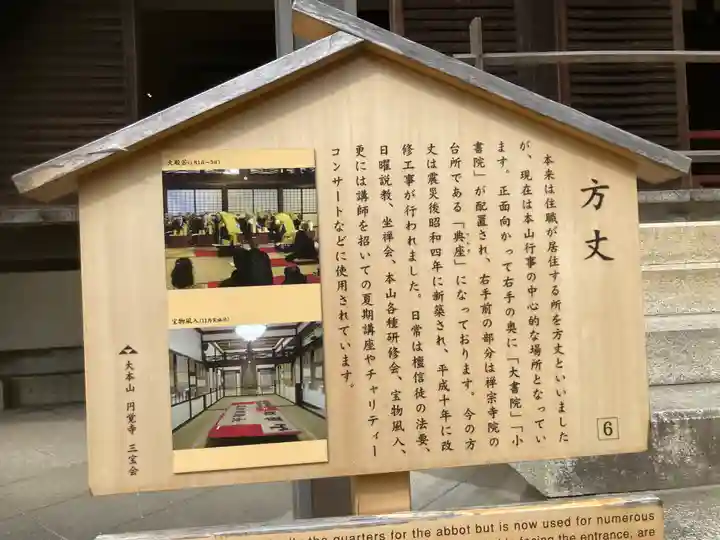 方丈
本来は住職が居住する所を方丈といいました
が、現在は本山行事の中心的な場所となってい
ます。正面向かって右手の奥に「大書院」「小
書院」が配置され、右手前の部分は禅宗寺院の
台所である「典座」になっております。今の方
丈は震災後昭和四年に新築され、平成十年に改
修工事が行われました。日常は檀信徒の法要、
日曜説教、坐禅会、本山各種研修会、宝物風入、
更には講師を招いての夏期講座やチャリティー
コンサートなどに使用されています。
6
宝物風入
大本山 円覚寺 三宝会
the quarters for the abbot but is now used for numerous
facing the entrance, are